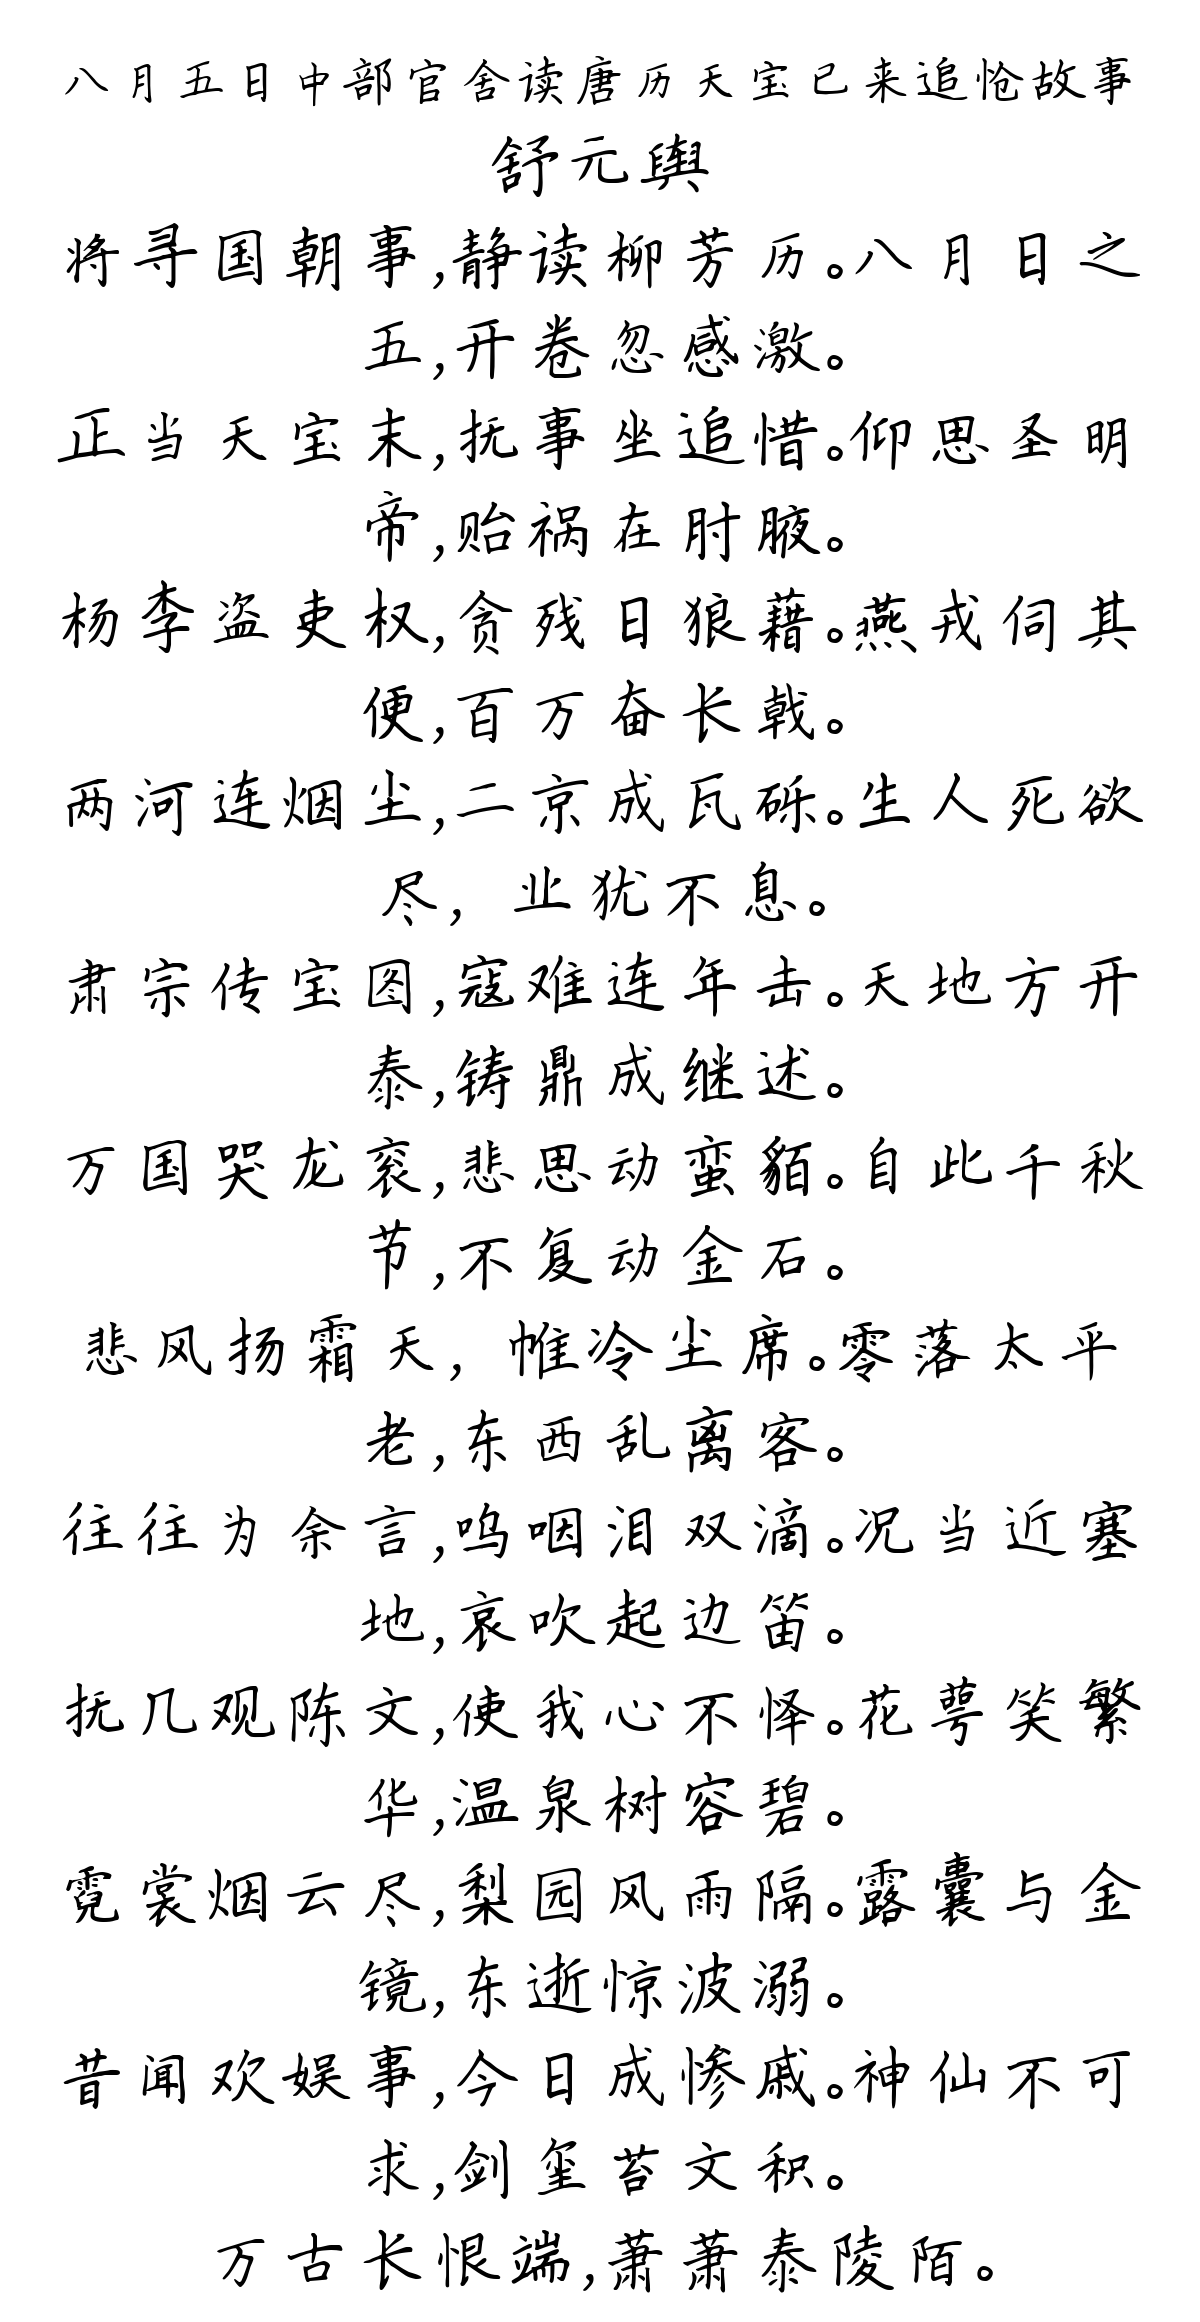 八月五日中部官舍读唐历天宝已来追怆故事
舒元舆
将寻国朝事,静读柳芳历。八月日之
五,开卷忽感激。
正当天宝末,抚事坐追惜。仰思圣明
帝,贻祸在肘腋。
杨李盗吏权,贪残日狼藉。燕戎伺其
便,百万奋长戟。
两河连烟尘,二京成瓦砾。生人死欲
尽, 业犹不息。
肃宗传宝图,寇难连年击。天地方开
泰,铸鼎成继述。
万国哭龙衮,悲思动蛮貊。自此千秋
节,不复动金石。
悲风扬霜天, 帷冷尘席。零落太平
老,东西乱离客。
往往为余言,呜咽泪双滴。况当近塞
地,哀吹起边笛。
抚几观陈文,使我心不怿。花萼笑繁
华,温泉树容碧。
霓裳烟云尽,梨园风雨隔。露囊与金
镜,东逝惊波溺。
昔闻欢娱事,今日成惨戚。神仙不可
求,剑玺苔文积。
万古长恨端,萧萧泰陵陌。